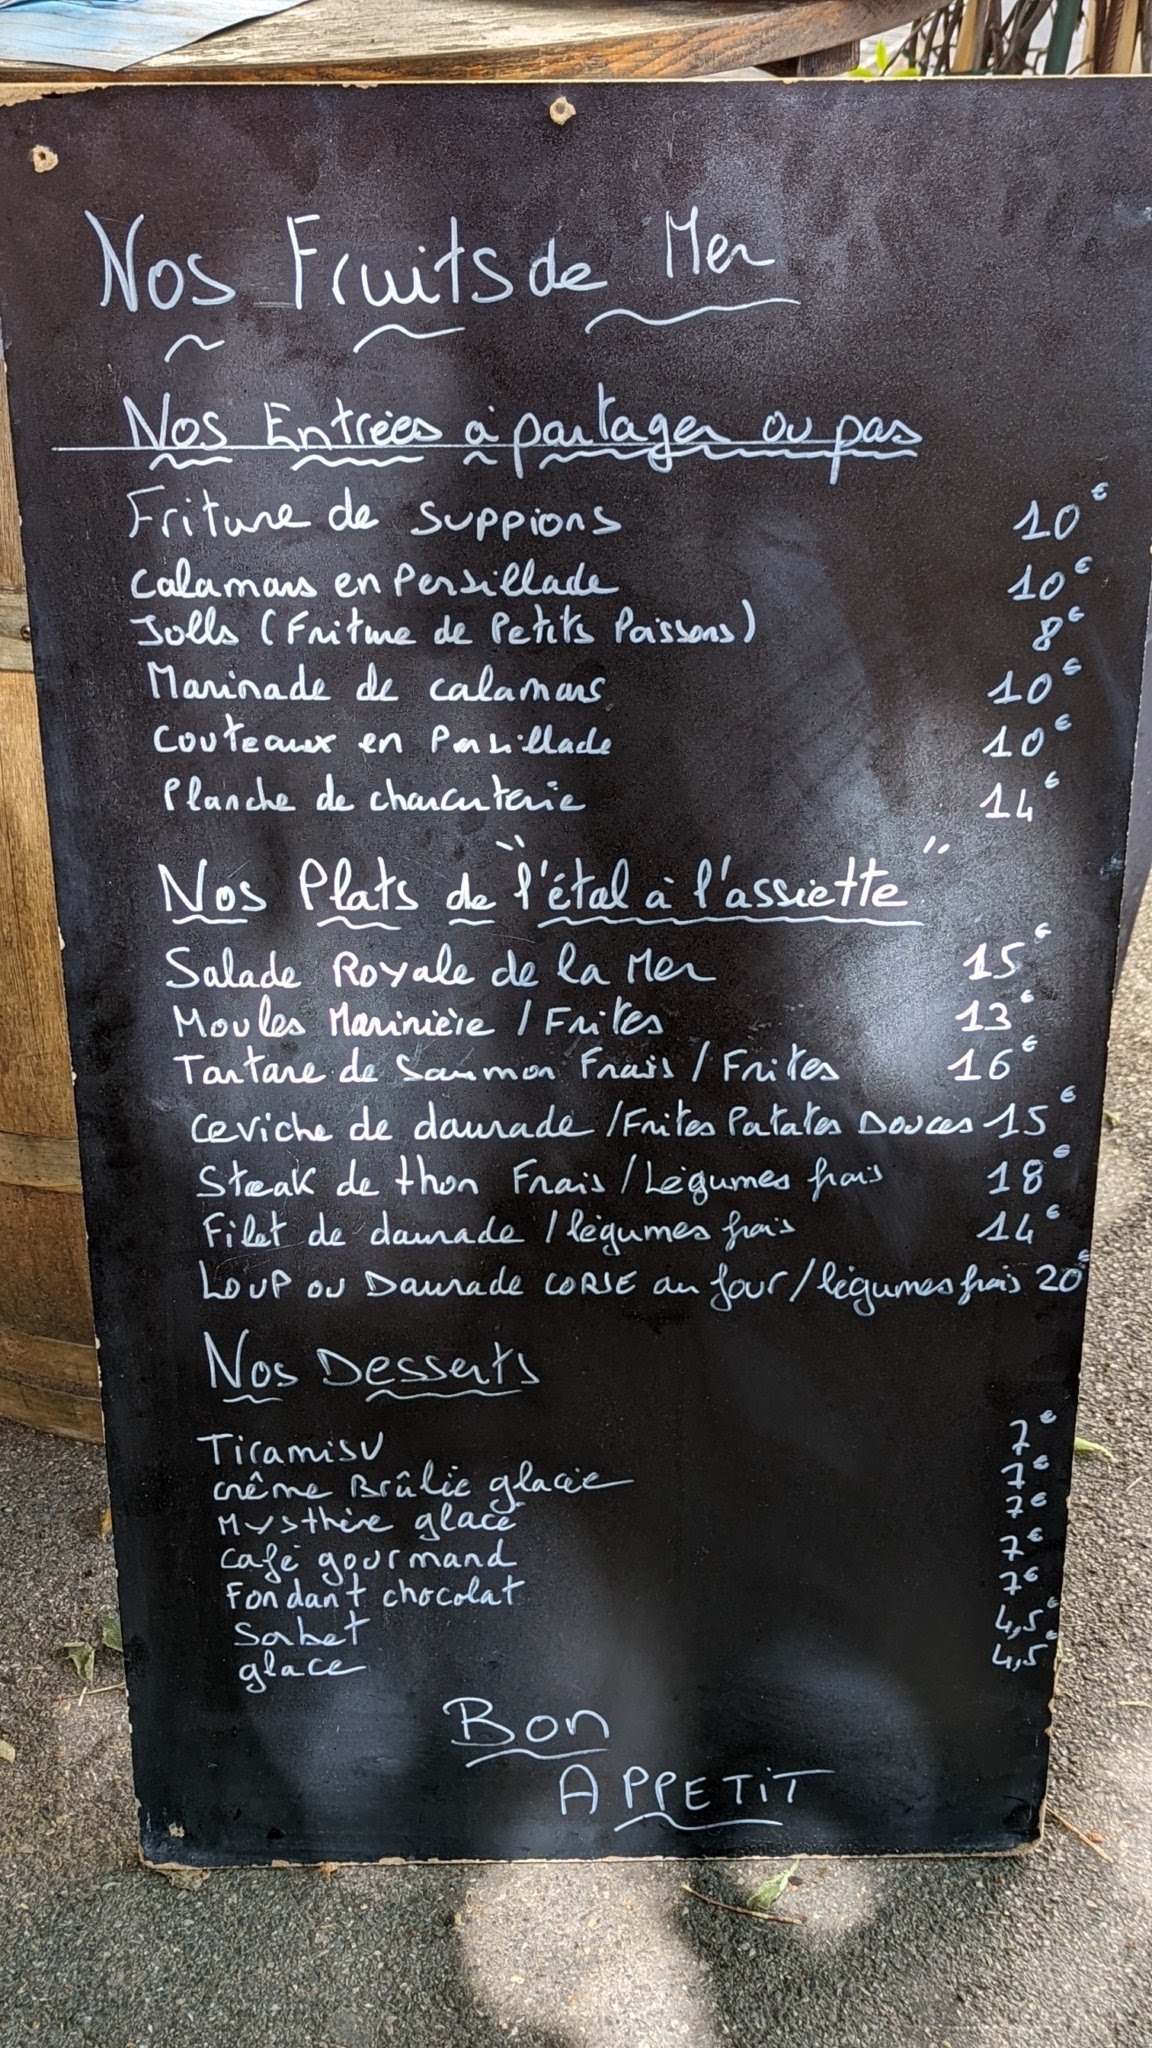 Nos Fruits de Mer
Nos Entrées à partager ou pas
Friture de suppions 10€
Calamars en Persillade 10€
Jolls (Friture de Petits Poissons) 8€
Marinade de calamars 10€
Couteaux en Persillade 10€
Planche de charcuterie 14€
Nos Plats de "l'étal à l'assiette"
Salade Royale de la Mer 15€
Moules Marinière / Frites 13€
Tartare de Saumon Frais / Frites 16€
Ceviche de daurade / Frites Patates Douces 15€
Steak de thon Frais / Légumes frais 18€
Filet de daurade / légumes frais 14€
Loup ou Daurade CORSE au four / légumes frais 20€
Nos Desserts
Tiramisu 7€
crème Brûlée glacée 7€
Mysthère glacé 7€
Café gourmand 7€
Fondant chocolat 7€
Sorbet 4,5€
glace 4,5€
Bon
APPETIT